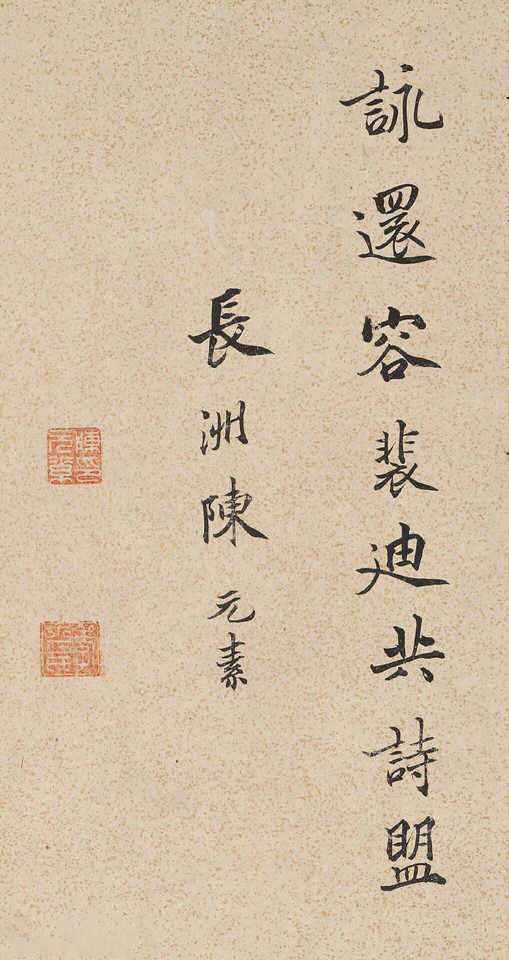 詠還容裴迪共詩盟
長洲陳元素